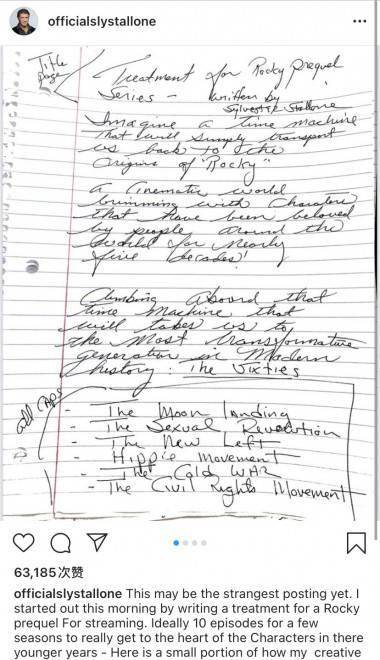 officialslystallone
Title
page
Treatment for Rocky Prequel
Series - written by
Sylvester Stallone
Imagine a time machine
That will simply transport
us back to the
Origins of "Rocky"
a Cinematic world
brimming with Characters
that have been beloved
by people around the
World for Nearly
five Decades!
Climbing Aboard that
time Machine that
will takes us to
the Most transformative
generation in Modern
history: The Sixties
add CAPS
- The Moon landing
- The Sexual Revolution
- The New Left
- Hippie Movement
- The Cold WAR
- The Civil Rights Movement
63,185次赞
officialslystallone This may be the strangest posting yet. I
started out this morning by writing a treatment for a Rocky
prequel For streaming. Ideally 10 episodes for a few
seasons to really get to the heart of the Characters in there
younger years - Here is a small portion of how my creative